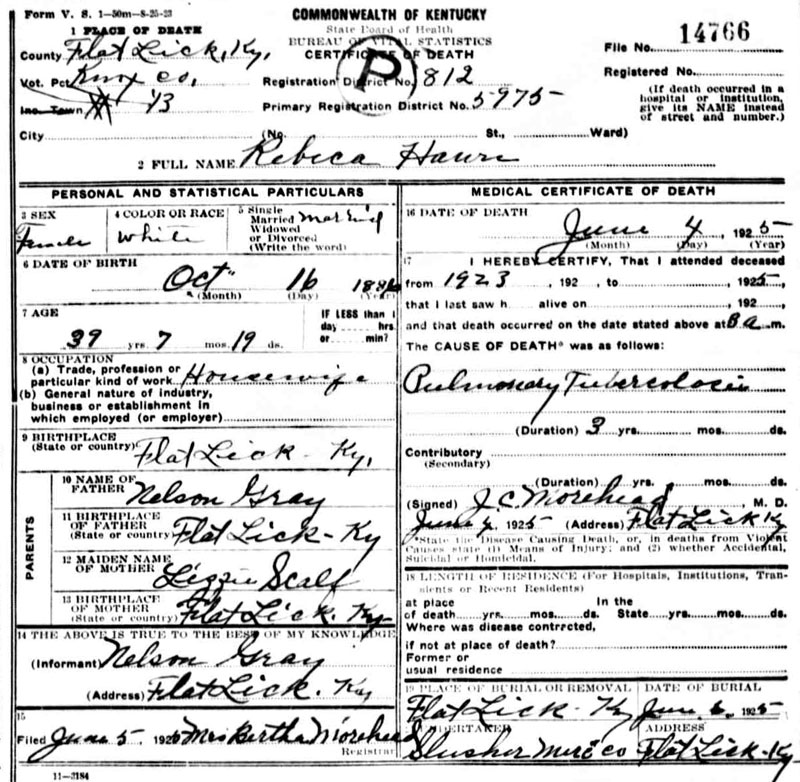 Form V. S. 1-50m-8-25-23
COMMONWEALTH OF KENTUCKY
State Board of Health
BUREAU OF VITAL STATISTICS
CERTIFICATE OF DEATH
P
File No. 14766
Registered No.
(If death occurred in a hospital or institution, give its NAME instead of street and number.)
1 PLACE OF DEATH
County Flat Lick, Ky,
Vot. Pct. Knox co,
Inc. Town # 13
Registration District No. 812
Primary Registration District No. 5975
City (No. St., Ward)
2 FULL NAME Rebeca
PERSONAL AND STATISTICAL PARTICULARS
3 SEX Female
4 COLOR OR RACE White
5 Single Married Widowed or Divorced (Write the word) Married
6 DATE OF BIRTH
Oct 16
(Month) (Day) (Year)
7 AGE
39 yrs. 7 mos. 19 ds.
IF LESS than 1 day hrs. or min?
8 OCCUPATION
(a) Trade, profession or particular kind of work Housewife
(b) General nature of industry, business or establishment in which employed (or employer)
9 BIRTHPLACE
(State or country) Flat Lick - Ky,
PARENTS
10 NAME OF FATHER Nelson Gray
11 BIRTHPLACE OF FATHER (State or country) Flat Lick - Ky
12 MAIDEN NAME OF MOTHER Lizzie Scalf
13 BIRTHPLACE OF MOTHER (State or country) Flat Lick. Ky
14 THE ABOVE IS TRUE TO THE BEST OF MY KNOWLEDGE
(Informant) Nelson Gray
(Address) Flat Lick. Ky
15
Filed June 5, 192 Mrs Bertha Morehead
Registrar
11-3184
MEDICAL CERTIFICATE OF DEATH
16 DATE OF DEATH
June 4, 1925
(Month) (Day) (Year)
17 I HEREBY CERTIFY, That I attended deceased
from 1923, 192 , to , 1925,
that I last saw h alive on , 192 ,
and that death occurred on the date stated above at 8 a. m.
The CAUSE OF DEATH* was as follows:
Pulmonary Tubercolosis
(Duration) 3 yrs. mos. ds.
Contributory
(Secondary)
(Duration) yrs. mos. ds.
(Signed) J. C. Morehead, M. D.
June 4, 1925 (Address) Flat Lick Ky
*State the Disease Causing Death, or, in deaths from Violent Causes state (1) Means of Injury; and (2) whether Accidental, Suicidal or Homicidal.
18 LENGTH OF RESIDENCE (For Hospitals, Institutions, Transients or Recent Residents)
at place of death yrs. mos. ds. In the State yrs. mos. ds.
Where was disease contrrcted,
if not at place of death?
Former or usual residence
19 PLACE OF BURIAL OR REMOVAL
Flat Lick - Ky
DATE OF BURIAL
June 6, 1925
UNDERTAKER
Slusher Merc co
ADDRESS
Flat Lick - Ky